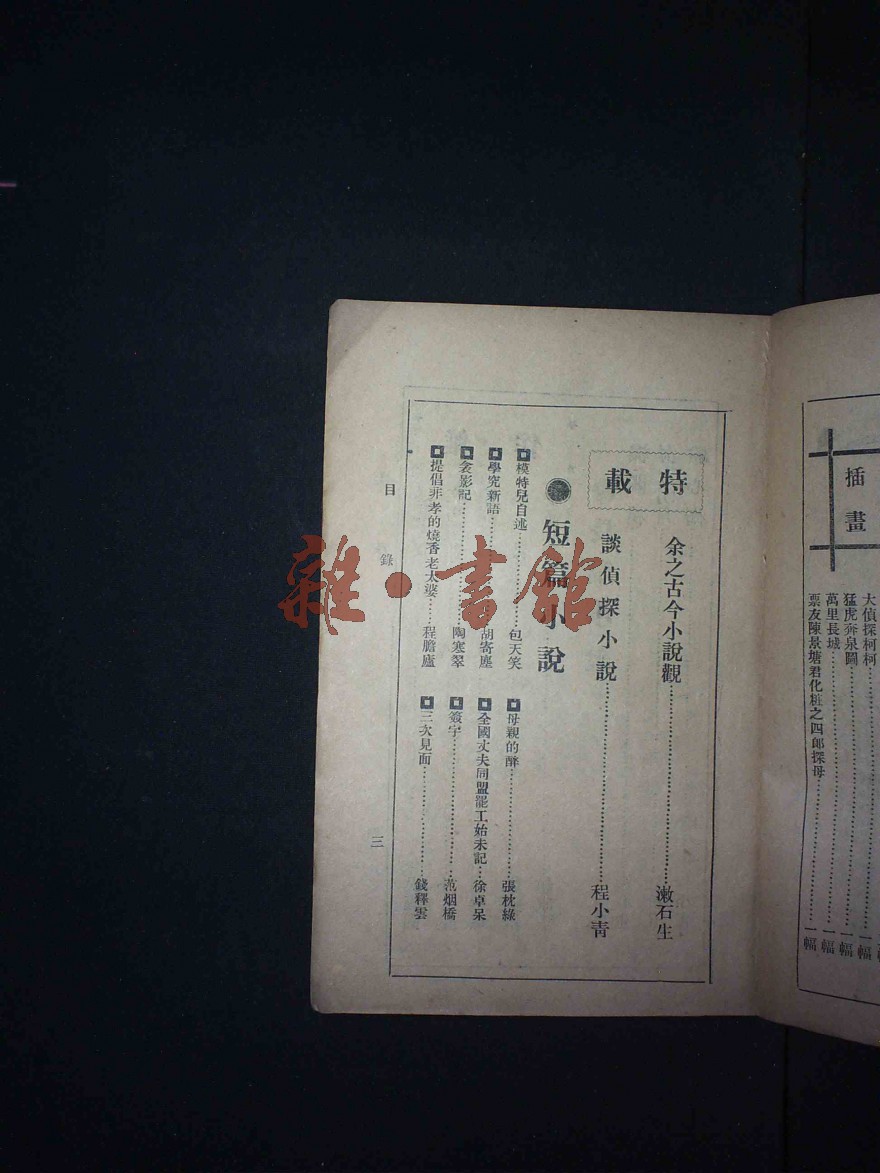 插畫
大偵探柯柯
猛虎奔泉圖……一幅
萬里長城……一幅
票友陳景塘君化粧之四郎探母……一幅
特載
余之古今小說觀……漱石生
談偵探小說……程小青
短篇小說
模特兒自述……包天笑
母親的醉……張枕綠
學究新語……胡寄塵
全國丈夫同盟罷工始末記……徐卓呆
衾影記……陶寒翠
簽字……范烟橋
提倡非孝的燒香老太婆……程瞻廬
三次見面……錢釋雲
目錄
三
雜·書館